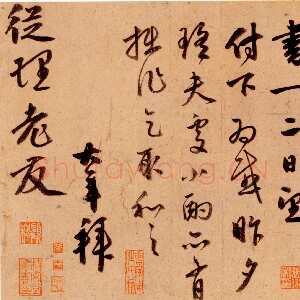 書一二日望
付下为感昨夕
頤夫處小酌亦有
拙作乞取和之
大年拜
從理老友